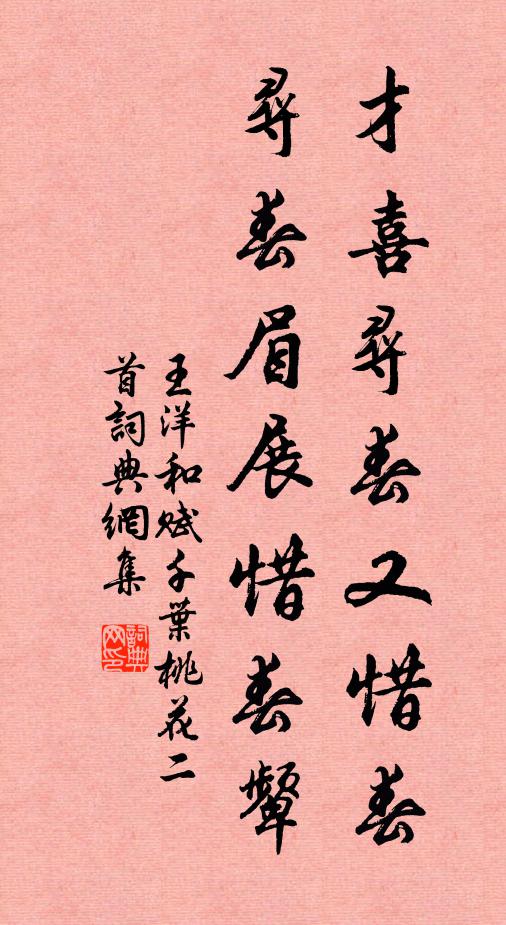 才喜尋春又惜春
尋春眉展惜春顰
王洋和賦千葉桃花二
首詞典網集
詞典网印